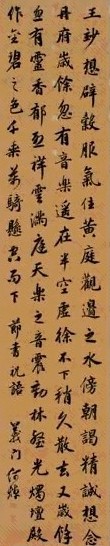 王玅想辟穀服氣住黃庭觀邊之水傍朝謁精誠想念
丹府歲餘忽有音樂遙在半空虛徐不下稍久散去又歲餘
忽有靈香郁烈祥雲滿庭天樂之音震動林壑光燭壇殿
作金碧之色千乘萬騎懸空而下 節書
義門何焯